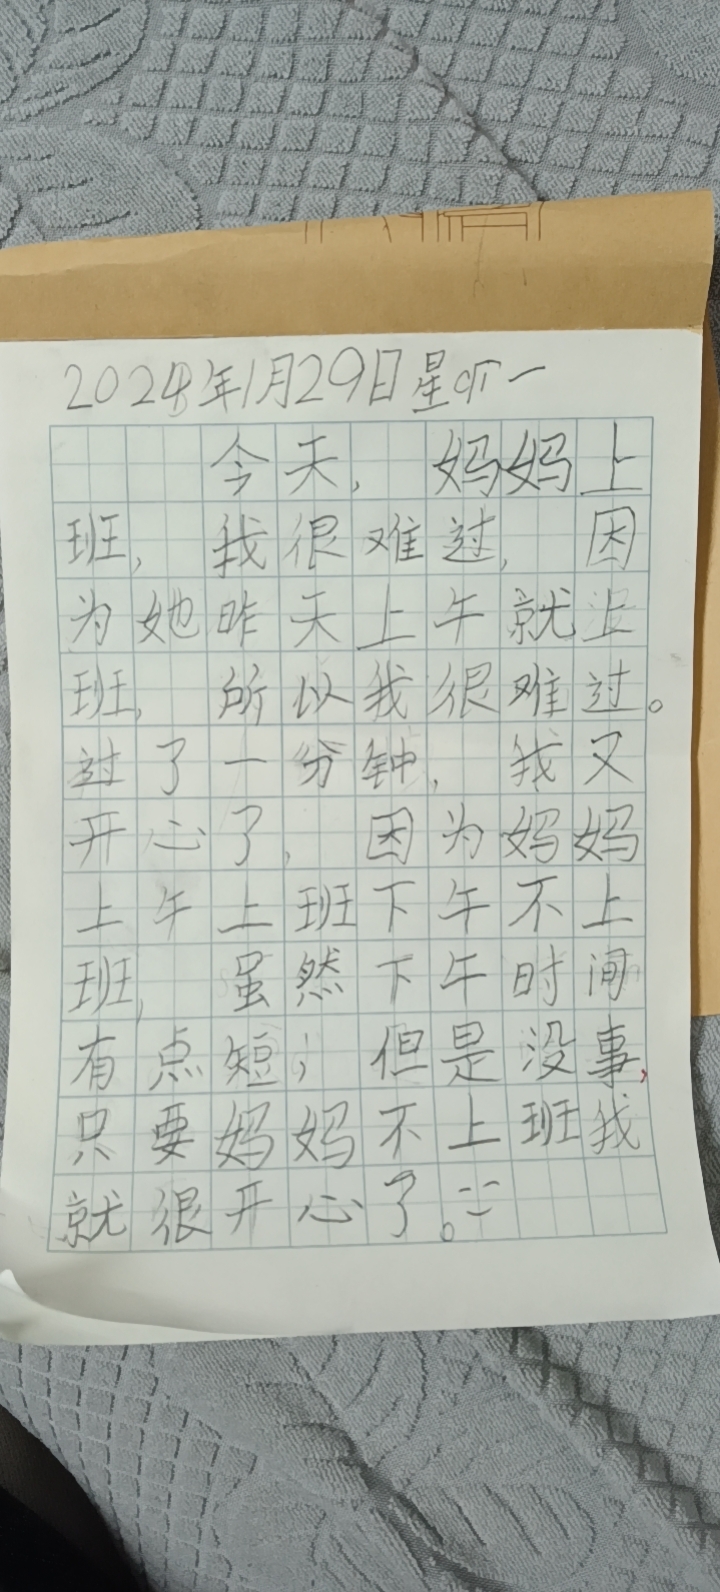 2024年1月29日星期一
今天,妈妈上
班,我很难过,因
为她昨天上午就上
班,所以我很难过。
过了一分钟,我又
开心了,因为妈妈
上午上班下午不上
班,虽然下午时间
有点短;但是没事,
只要妈妈不上班我
就很开心了。